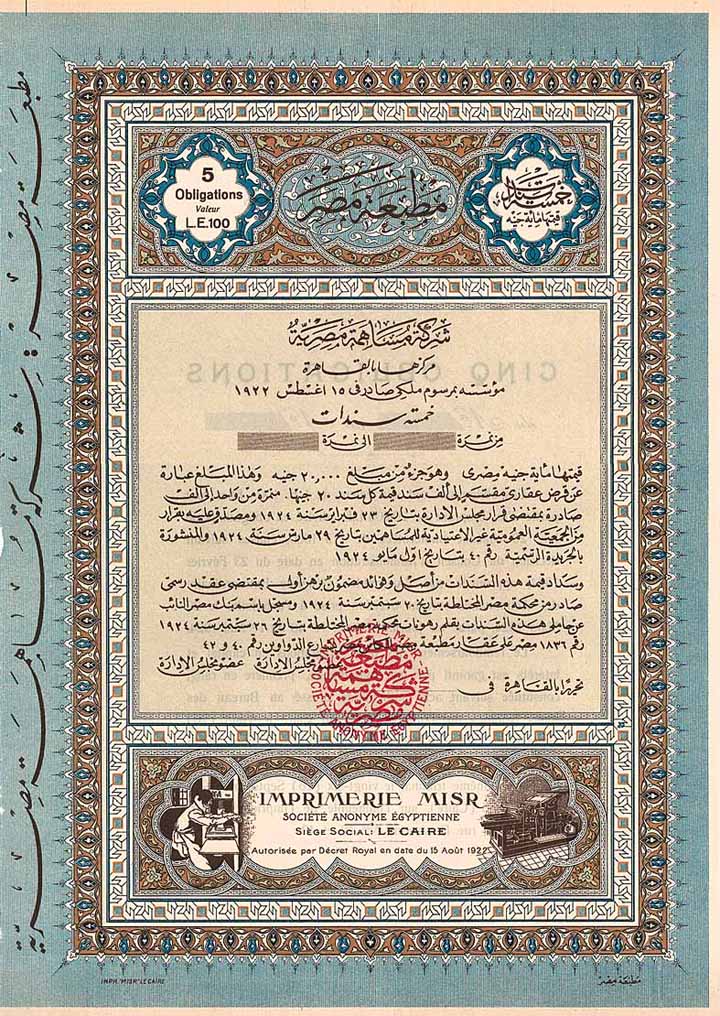 5
Obligations
Valeur
L.E.100
مطبعة مصر
خمسة سندات
قيمتها مائة جنيه
شركة مساهمة مصرية
مركزها بالقاهرة
مؤسسة بمرسوم ملكى صادر فى ١٥ اغسطس ١٩٢٢
خمسة سندات
من نمرة الى نمرة
قيمتها مائة جنيه مصرى وهو جزء من مبلغ ٢٠,٠٠٠ جنيه وهذا المبلغ عبارة
عن قرض عقارى مقسم الى ألف سند قيمة كل سند ٢٠ جنيها، منمرة من واحد الى ألف
صادرة بمقتضى قرار مجلس الادارة بتاريخ ٢٣ فبراير سنة ١٩٢٤ ومصدق عليه بقرار
من الجمعية العمومية غير الاعتيادية للمساهمين بتاريخ ٢٩ مارس سنة ١٩٢٤ والمنشورة
بالجريدة الرسمية رقم ٤٠ بتاريخ اول مايو ١٩٢٤
وسداد قيمة هذه السندات من أصل وفوائد مضمون برهن أول بمقتضى عقد رسمى
صادر من محكمة مصر المختلطة بتاريخ ٢٠ سبتمبر سنة ١٩٢٤ ومسجل باسم بنك مصر النائب
عن حاملى هذه السندات بقلم رهونات محكمة مصر المختلطة بتاريخ ٢٦ سبتمبر سنة ١٩٢٤
رقم ١٨٣٦ مصر على عقار مطبعة مصر شارع الدواوين رقم ٤٠ و ٤٢
تحريرا بالقاهرة فى عضو مجلس الادارة عضو مجلس الادارة
IMPRIMERIE MISR
SOCIÉTÉ ANONYME ÉGYPTIENNE
مطبعة مصر
شركة مساهمة مصرية
IMPRIMERIE MISR
SOCIÉTÉ ANONYME ÉGYPTIENNE
SIÈGE SOCIAL: LE CAIRE
Autorisée par Décret Royal en date du 15 Août 1922
مطبعة مصر شركة مساهمة مصرية
IMPR. "MISR" LE CAIRE
مطبعة مصر